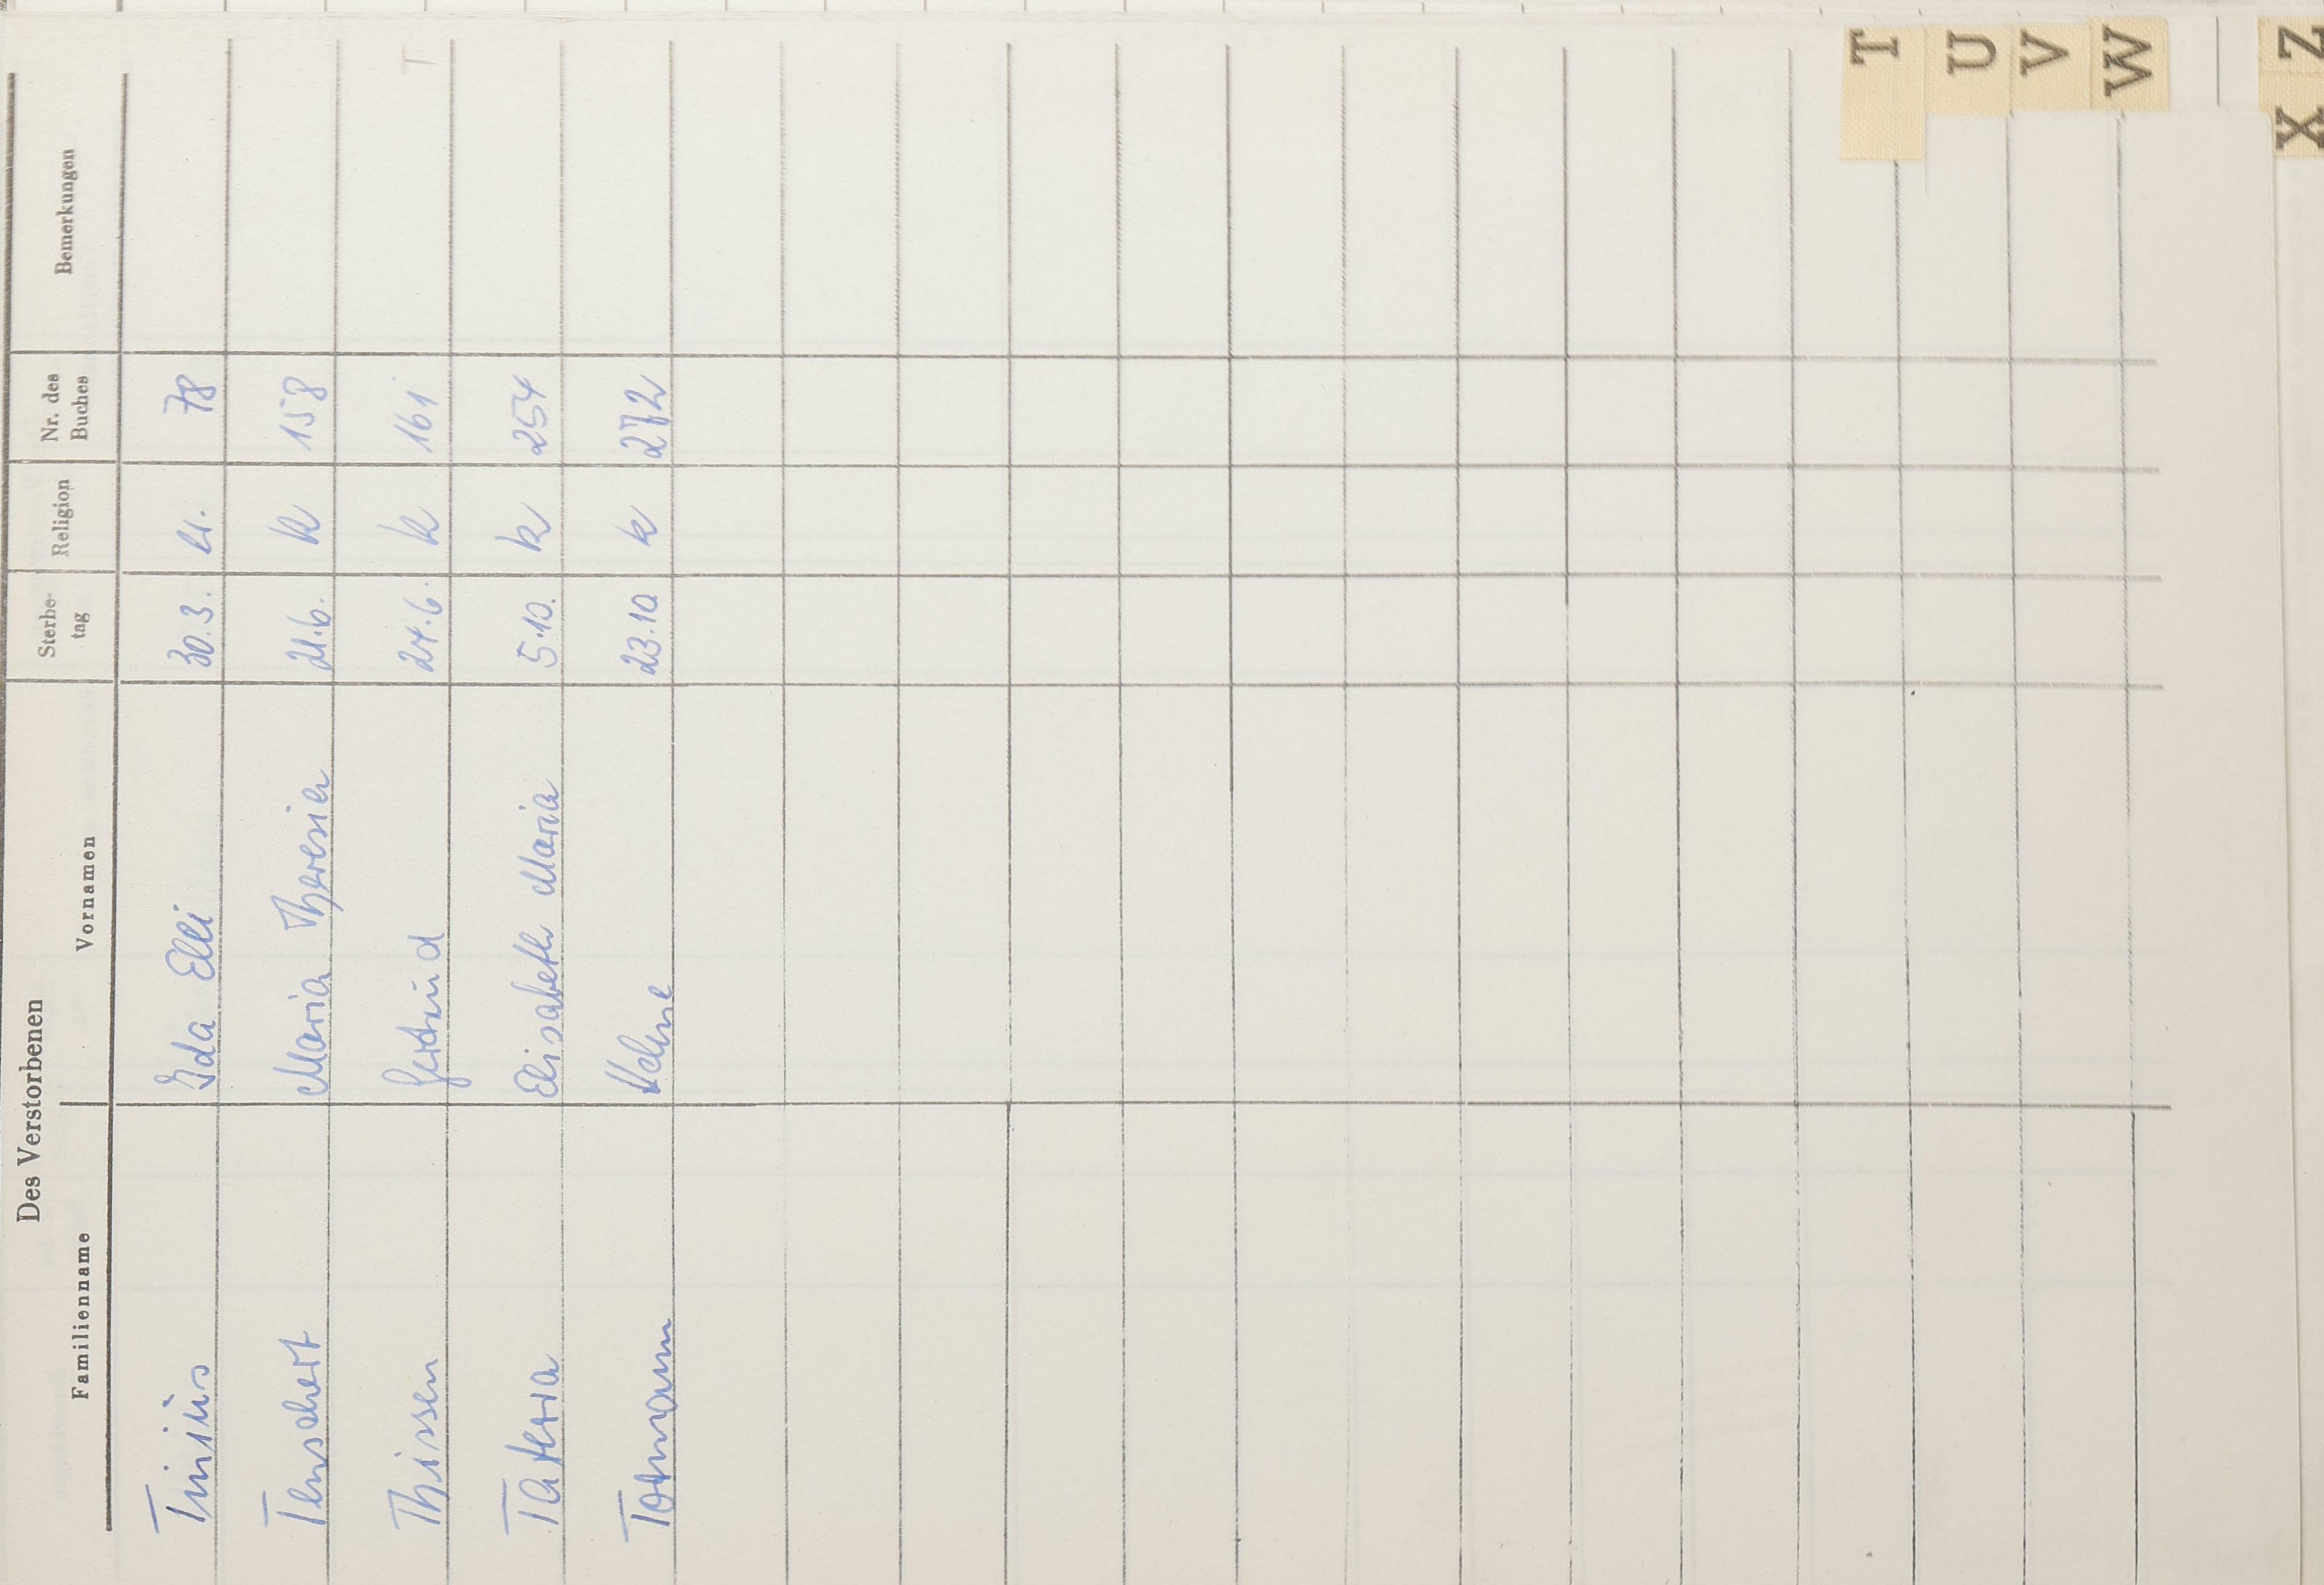 Des Verstorbenen
Familienname Vornamen Sterbe-tag Religion Nr. des Buches Bemerkungen
Ida Elli 30.3. ev. 78
Tenschert Maria Theresia 21.6. k 158
Thissen Gertrud 24.6. k 161
Elisabeth Maria 5.10. k 254
23.10 k 272
T
T
U
V
W
X Z